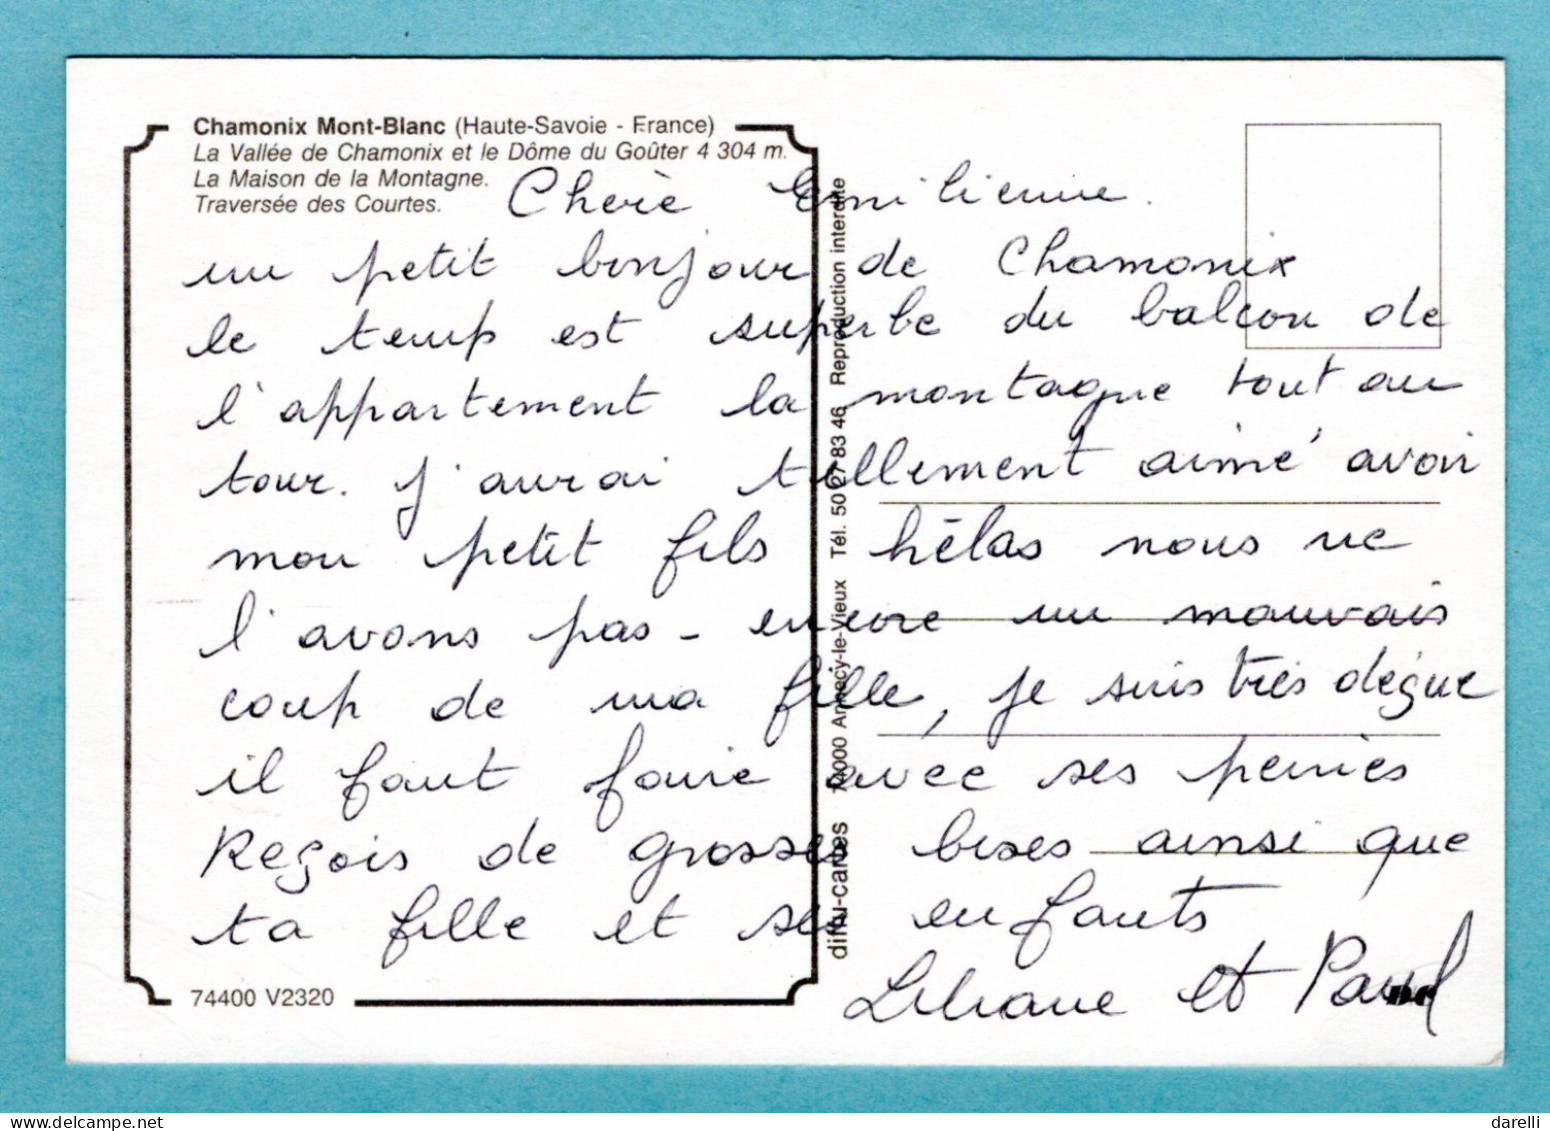 Chamonix Mont-Blanc (Haute-Savoie - France)
La Vallée de Chamonix et le Dôme du Goûter 4 304 m.
La Maison de la Montagne.
Traversée des Courtes.
Cherè Emilienne.
un petit bonjour de Chamonix
le temps est superbe du balcon de
l'appartement la montagne tout au
tour. J'aurai tellement aimé avoir
mon petit fils hélas nous ne
l'avons pas - encore un mauvais
coup de ma fille, je suis très déçue
il faut faire avec ses peines
Reçois de grosses bises ainsi que
ta fille et ses enfants
Liliane et Paul
74400 V2320
diffu-cartes 74000 Annecy-le-Vieux Tél. 50 27 83 46 Reproduction interdite
darelli